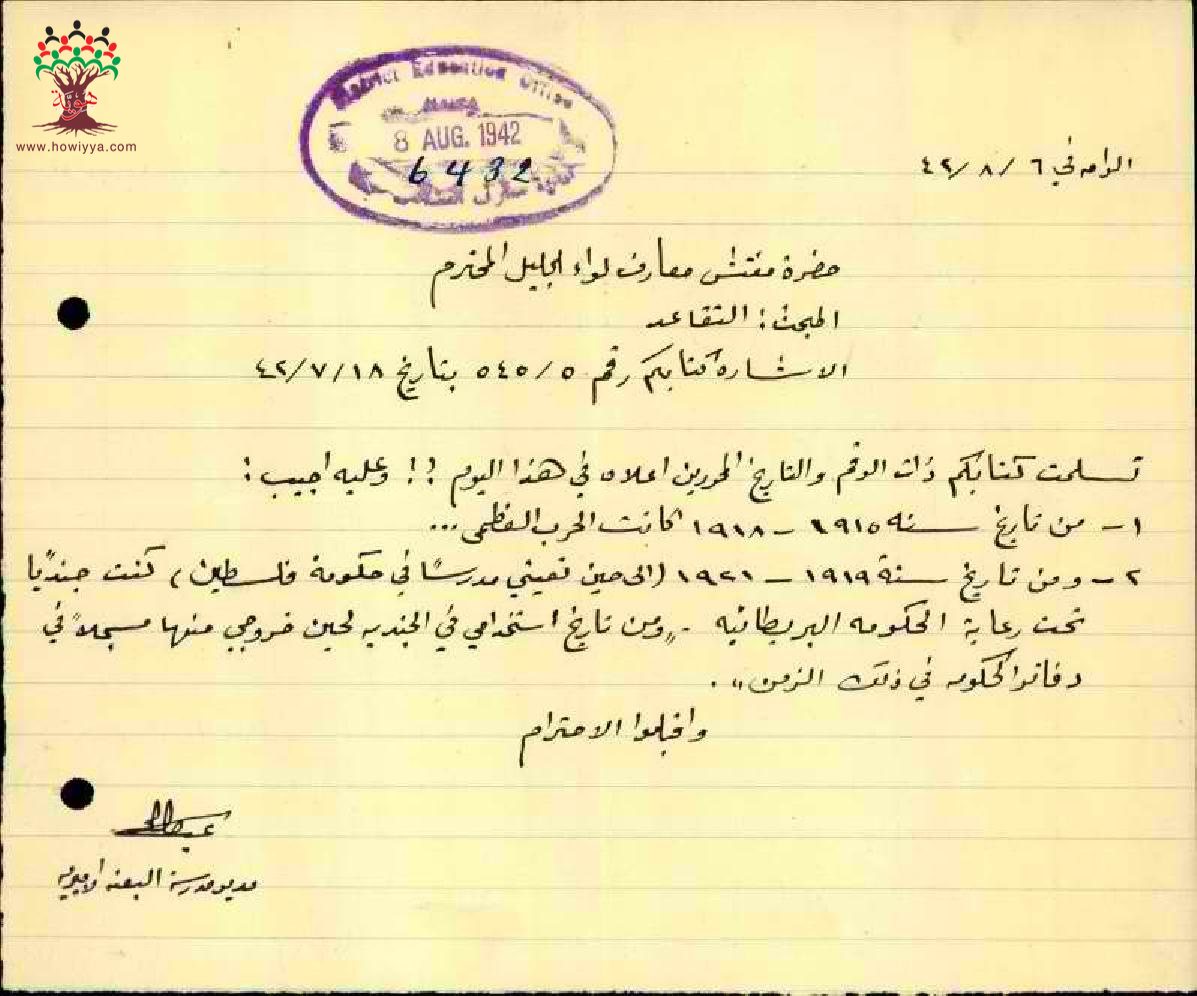 هوية
www.howiyya.com
District Education Office
8 AUG. 1942
6432
الرامه في ٦/٨/٤٢
حضرة مفتش معارف لواء الجليل المحترم
المبحث: التقاعد
الاشارة كتابكم رقم ٥٤٥/٥ بتاريخ ٤٢/٧/١٨
تسلمت كتابكم ذات الرقم والتاريخ المحررين اعلاه في هذا اليوم !! وعليه اجيب:
١- من تاريخ سنه ١٩١٥ - ١٩١٨ كانت الحرب العظمى ...
٢- ومن تاريخ سنة ١٩١٩ - ١٩٢١ (الى حين تعييني مدرسًا في حكومة فلسطين) كنت جنديًا
تحت رعاية الحكومه البريطانيه . „ومن تاريخ استخدامي في الجنديه لحين خروجي منها مسجلاً في
دفاتر الحكومه في ذلك الزمن" .
واقبلوا الاحترام
مدير مدرسة البعنه الاميريه